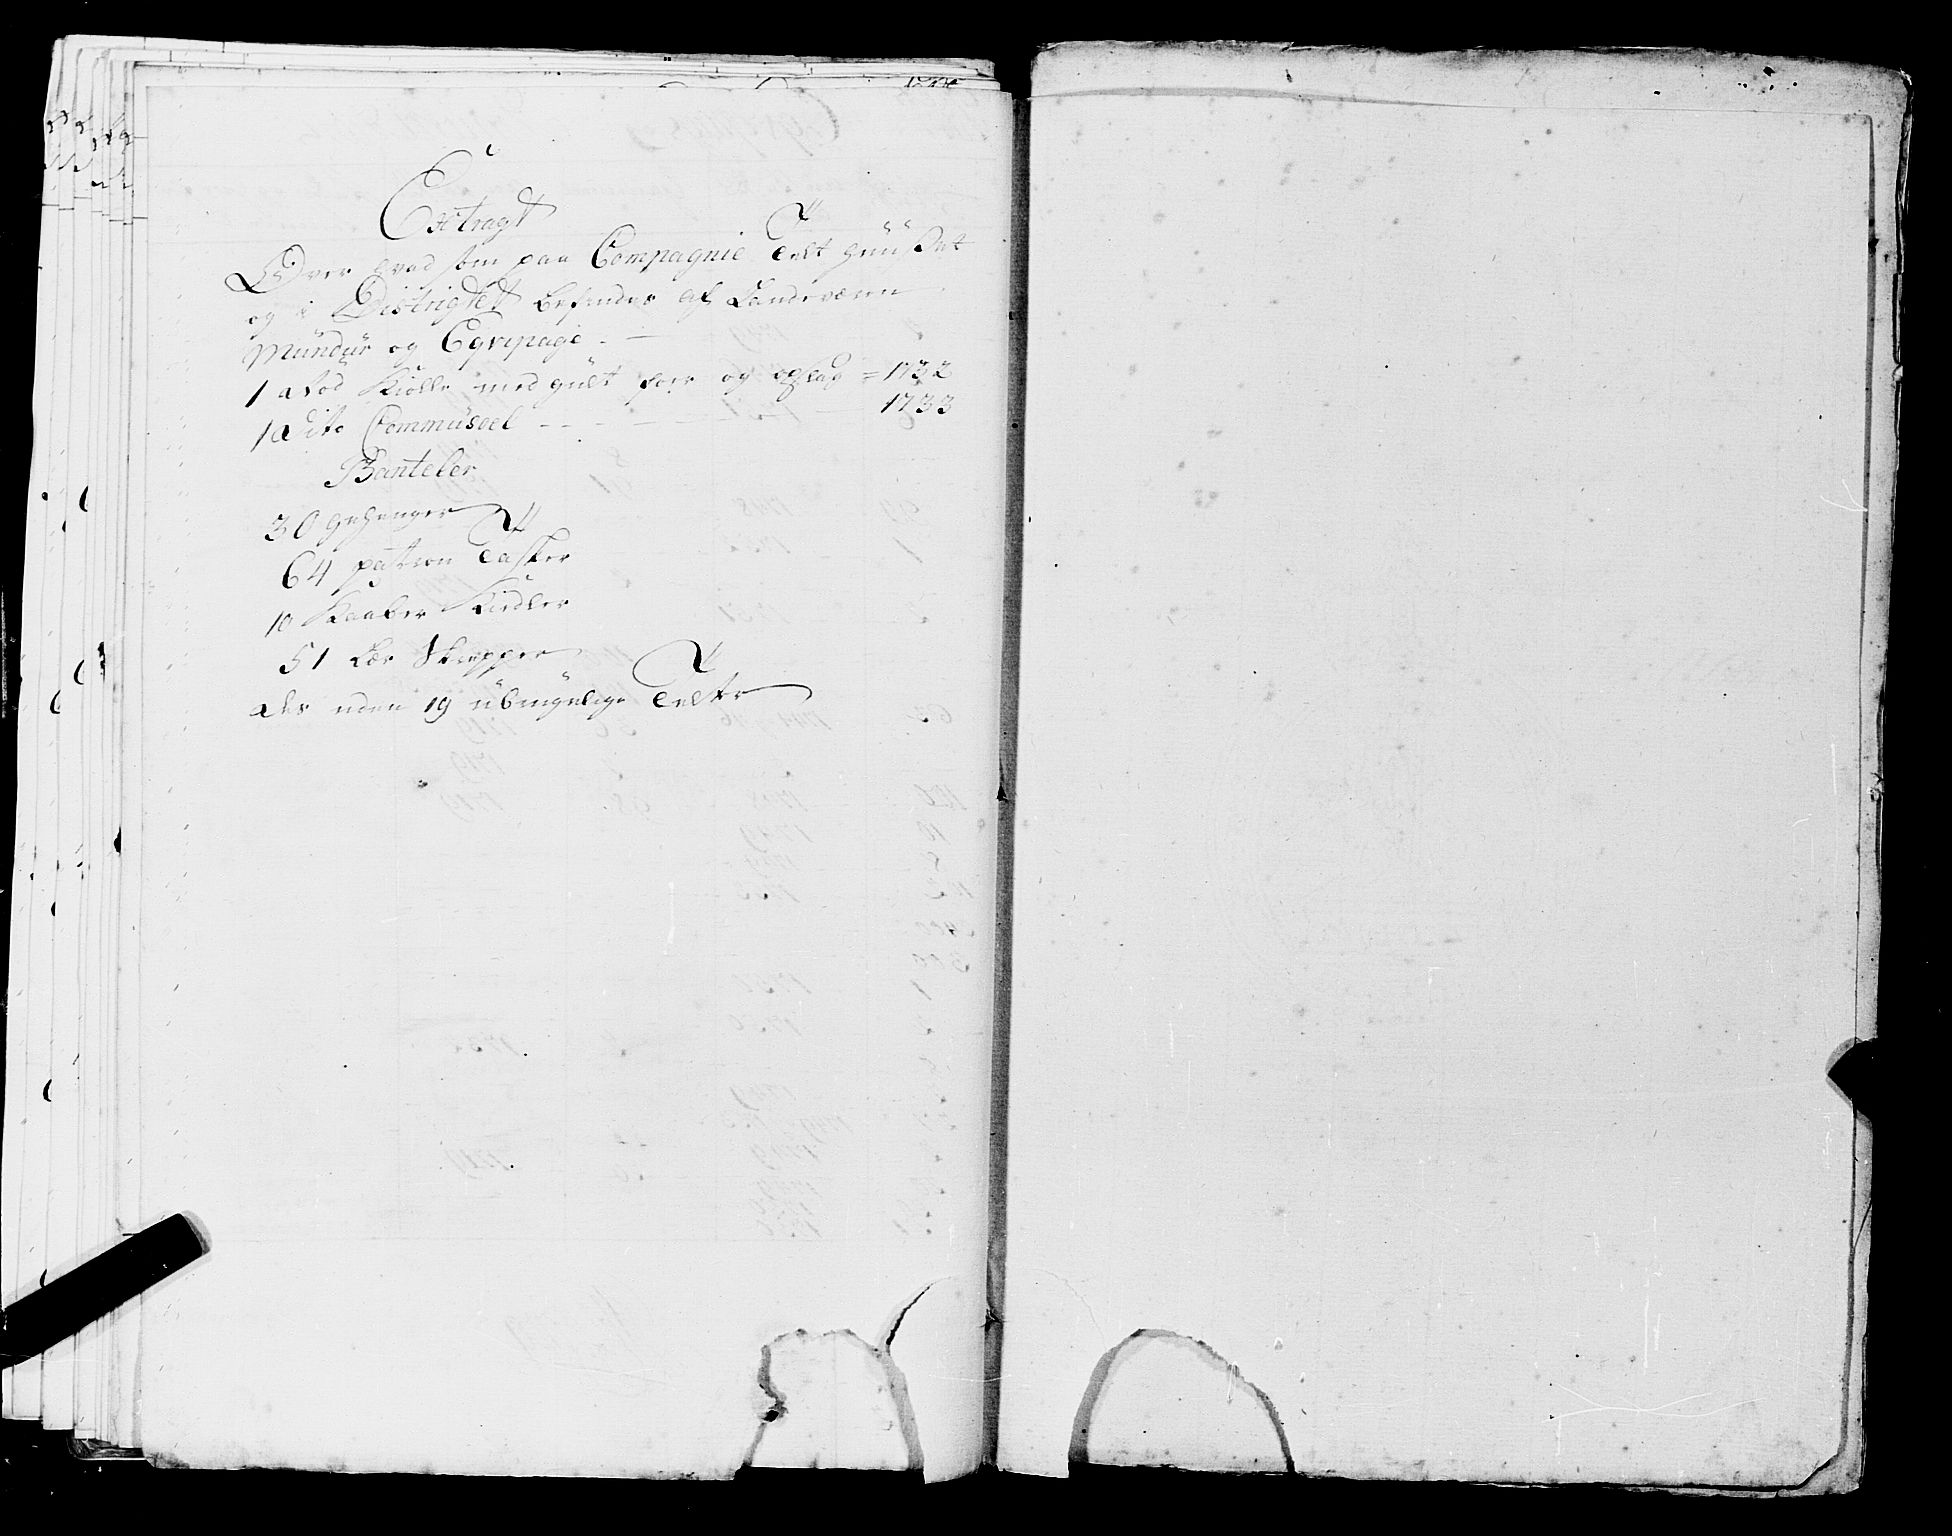 Extragt
Over hvad som paa Compagnie Telt huuset
og i Districtet befindes af Landeværn
Mundur og Eqvipage
1 Rød Kiolle med guelt foer og opslag = 1732
1 Dito Commusoel - - - - 1733
Banteler
30 gehenger
64 patron Tasker
10 Kaaber Kiedler
51 Lær Skrepper
des uden 19 ubrugelige Telte